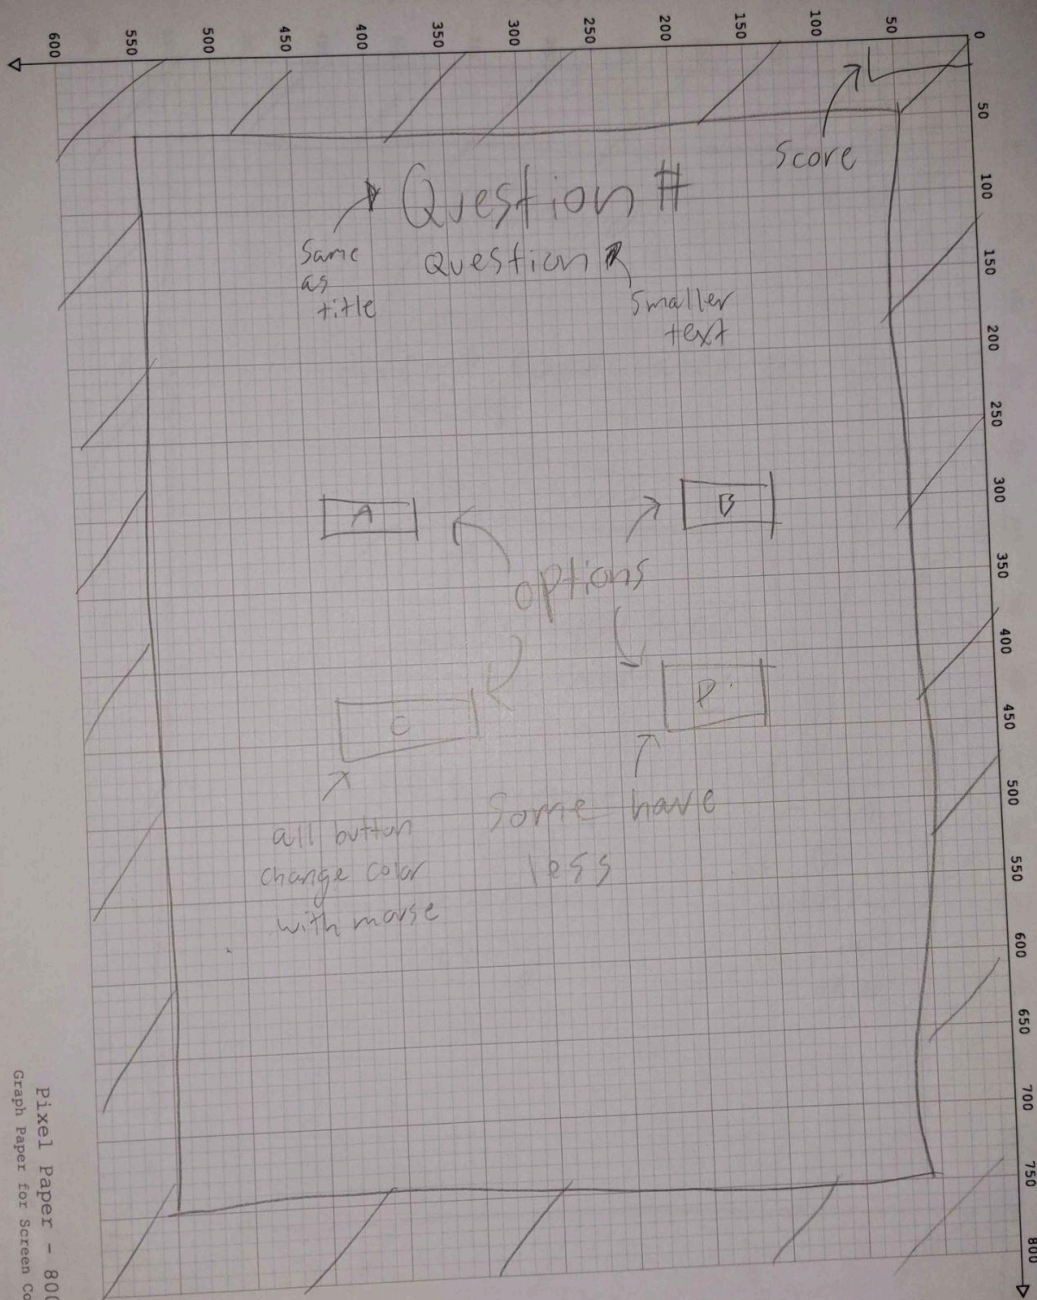 0
50
100
150
200
250
300
350
400
450
500
550
600
Score
50
100
150
200
250
300
350
400
450
500
550
600
650
700
750
800
Question #
Same
as
title
question
smaller
text
A
B
options
C
D
all button
change color
with mouse
Some have
less
Pixel Paper - 800
Graph Paper for Screen Co